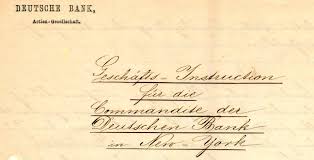 DEUTSCHE BANK,
Actien-Gesellschaft.
Geschäfts-Instruction
für die
Commandite der
Deutschen Bank
in New-York